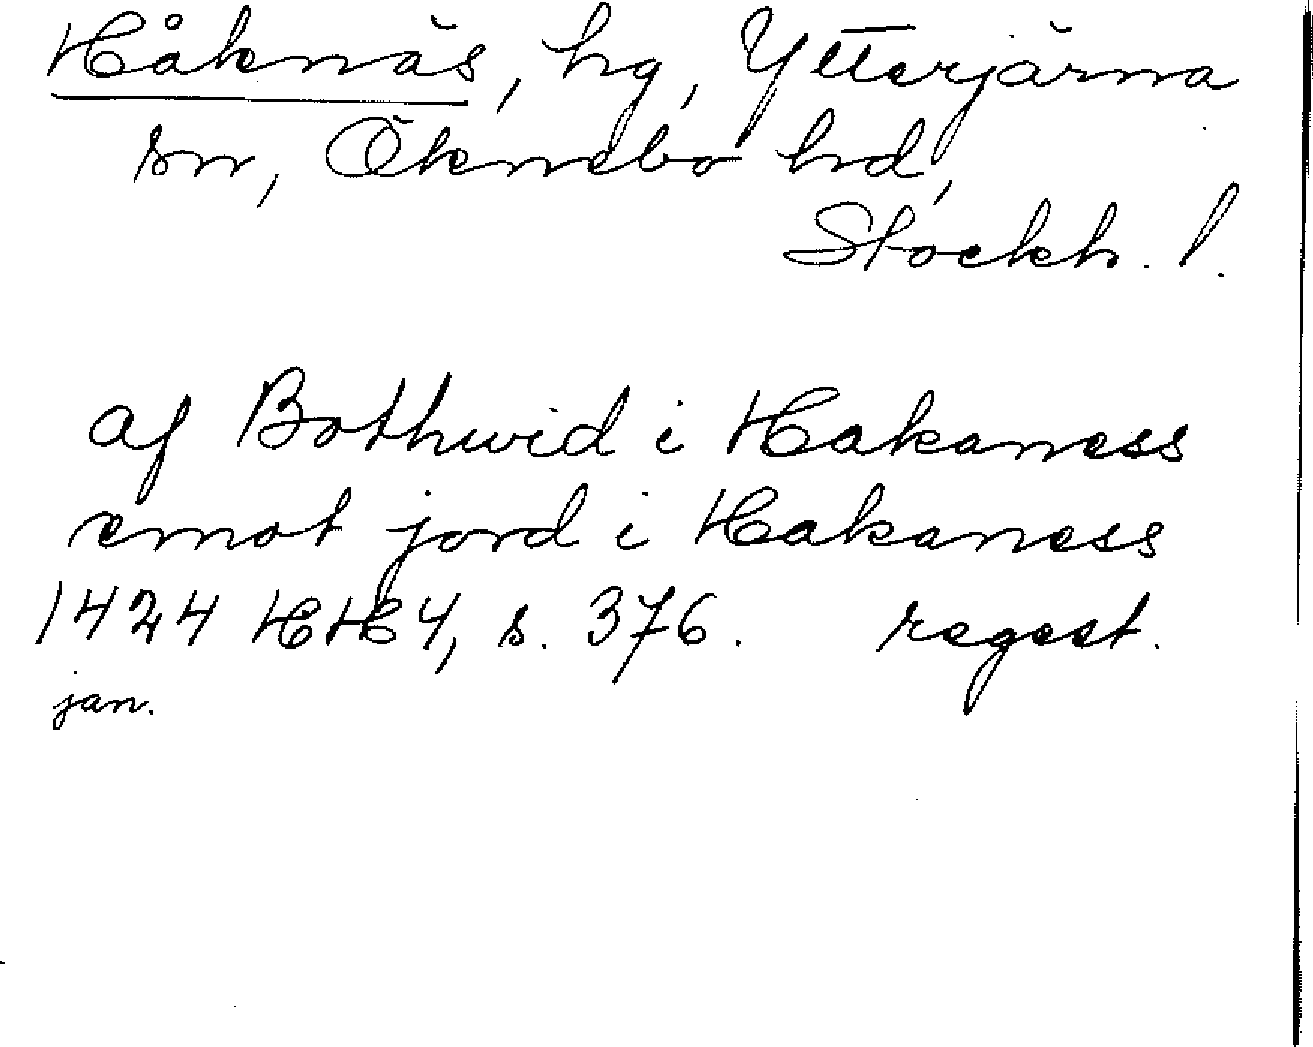 Håknäs, hg, Ytterjärna
sn, Öknebo hd,
Stockh. l.
af Bothwid i Hakaness
emot jord i Hakaness
1424 HH 4, s. 376. regest.
jan.